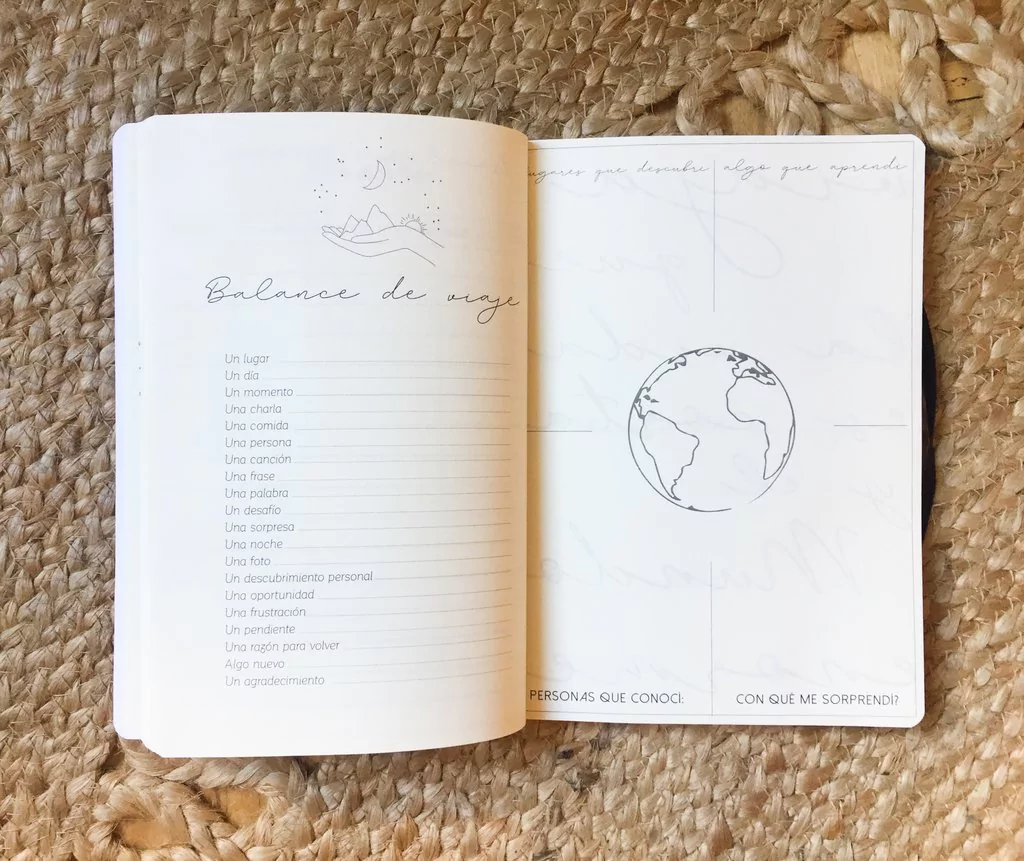 Balance de viaje
Un lugar
Un día
Un momento
Una charla
Una comida
Una persona
Una canción
Una frase
Una palabra
Un desafío
Una sorpresa
Una noche
Una foto
Un descubrimiento personal
Una oportunidad
Una frustración
Un pendiente
Una razón para volver
Algo nuevo
Un agradecimiento
ugares que descubrí
algo que aprendí
PERSONAS QUE CONOCÍ:
CON QUÉ ME SORPRENDÍ?